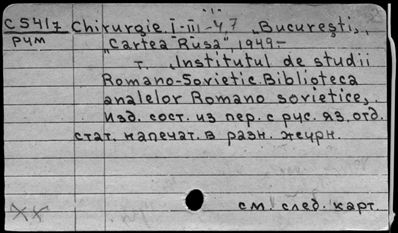 С 541/7 Chirurgie. I-III-47, București,
РУМ "Cartea Rusa", 1949-
т. „Institutul de studii
Romano-Sovietic. Biblioteca
analelor Romano sovietice,"
Изд. сост. из пер. с рус. яз. отд.
стат. напечат. в разн. журн.
см. след. карт.